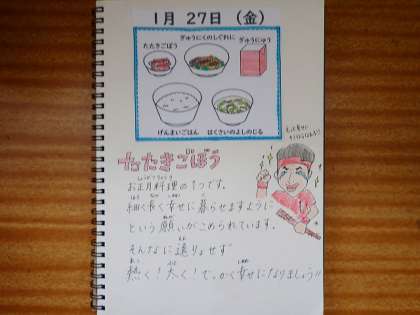 1月 27日（金）
ぎゅうにくのしぐれに
たたきごぼう
ぎゅうにゅう
げんまいごはん
はくさいのよしのじる
たたきごぼう
お正月料理の1つです。
細く長く幸せに暮らせますように
という願いがこめられています。
そんなに遠りょせず
熱く！太く！で、かく幸せになりましょう!!